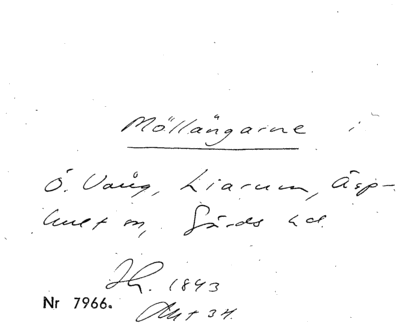 Möllängarne i
Ö. Vång, Liarum, Äsp-
hult sn, Gärds hd.
1843
Nr 7966. Akt 34.